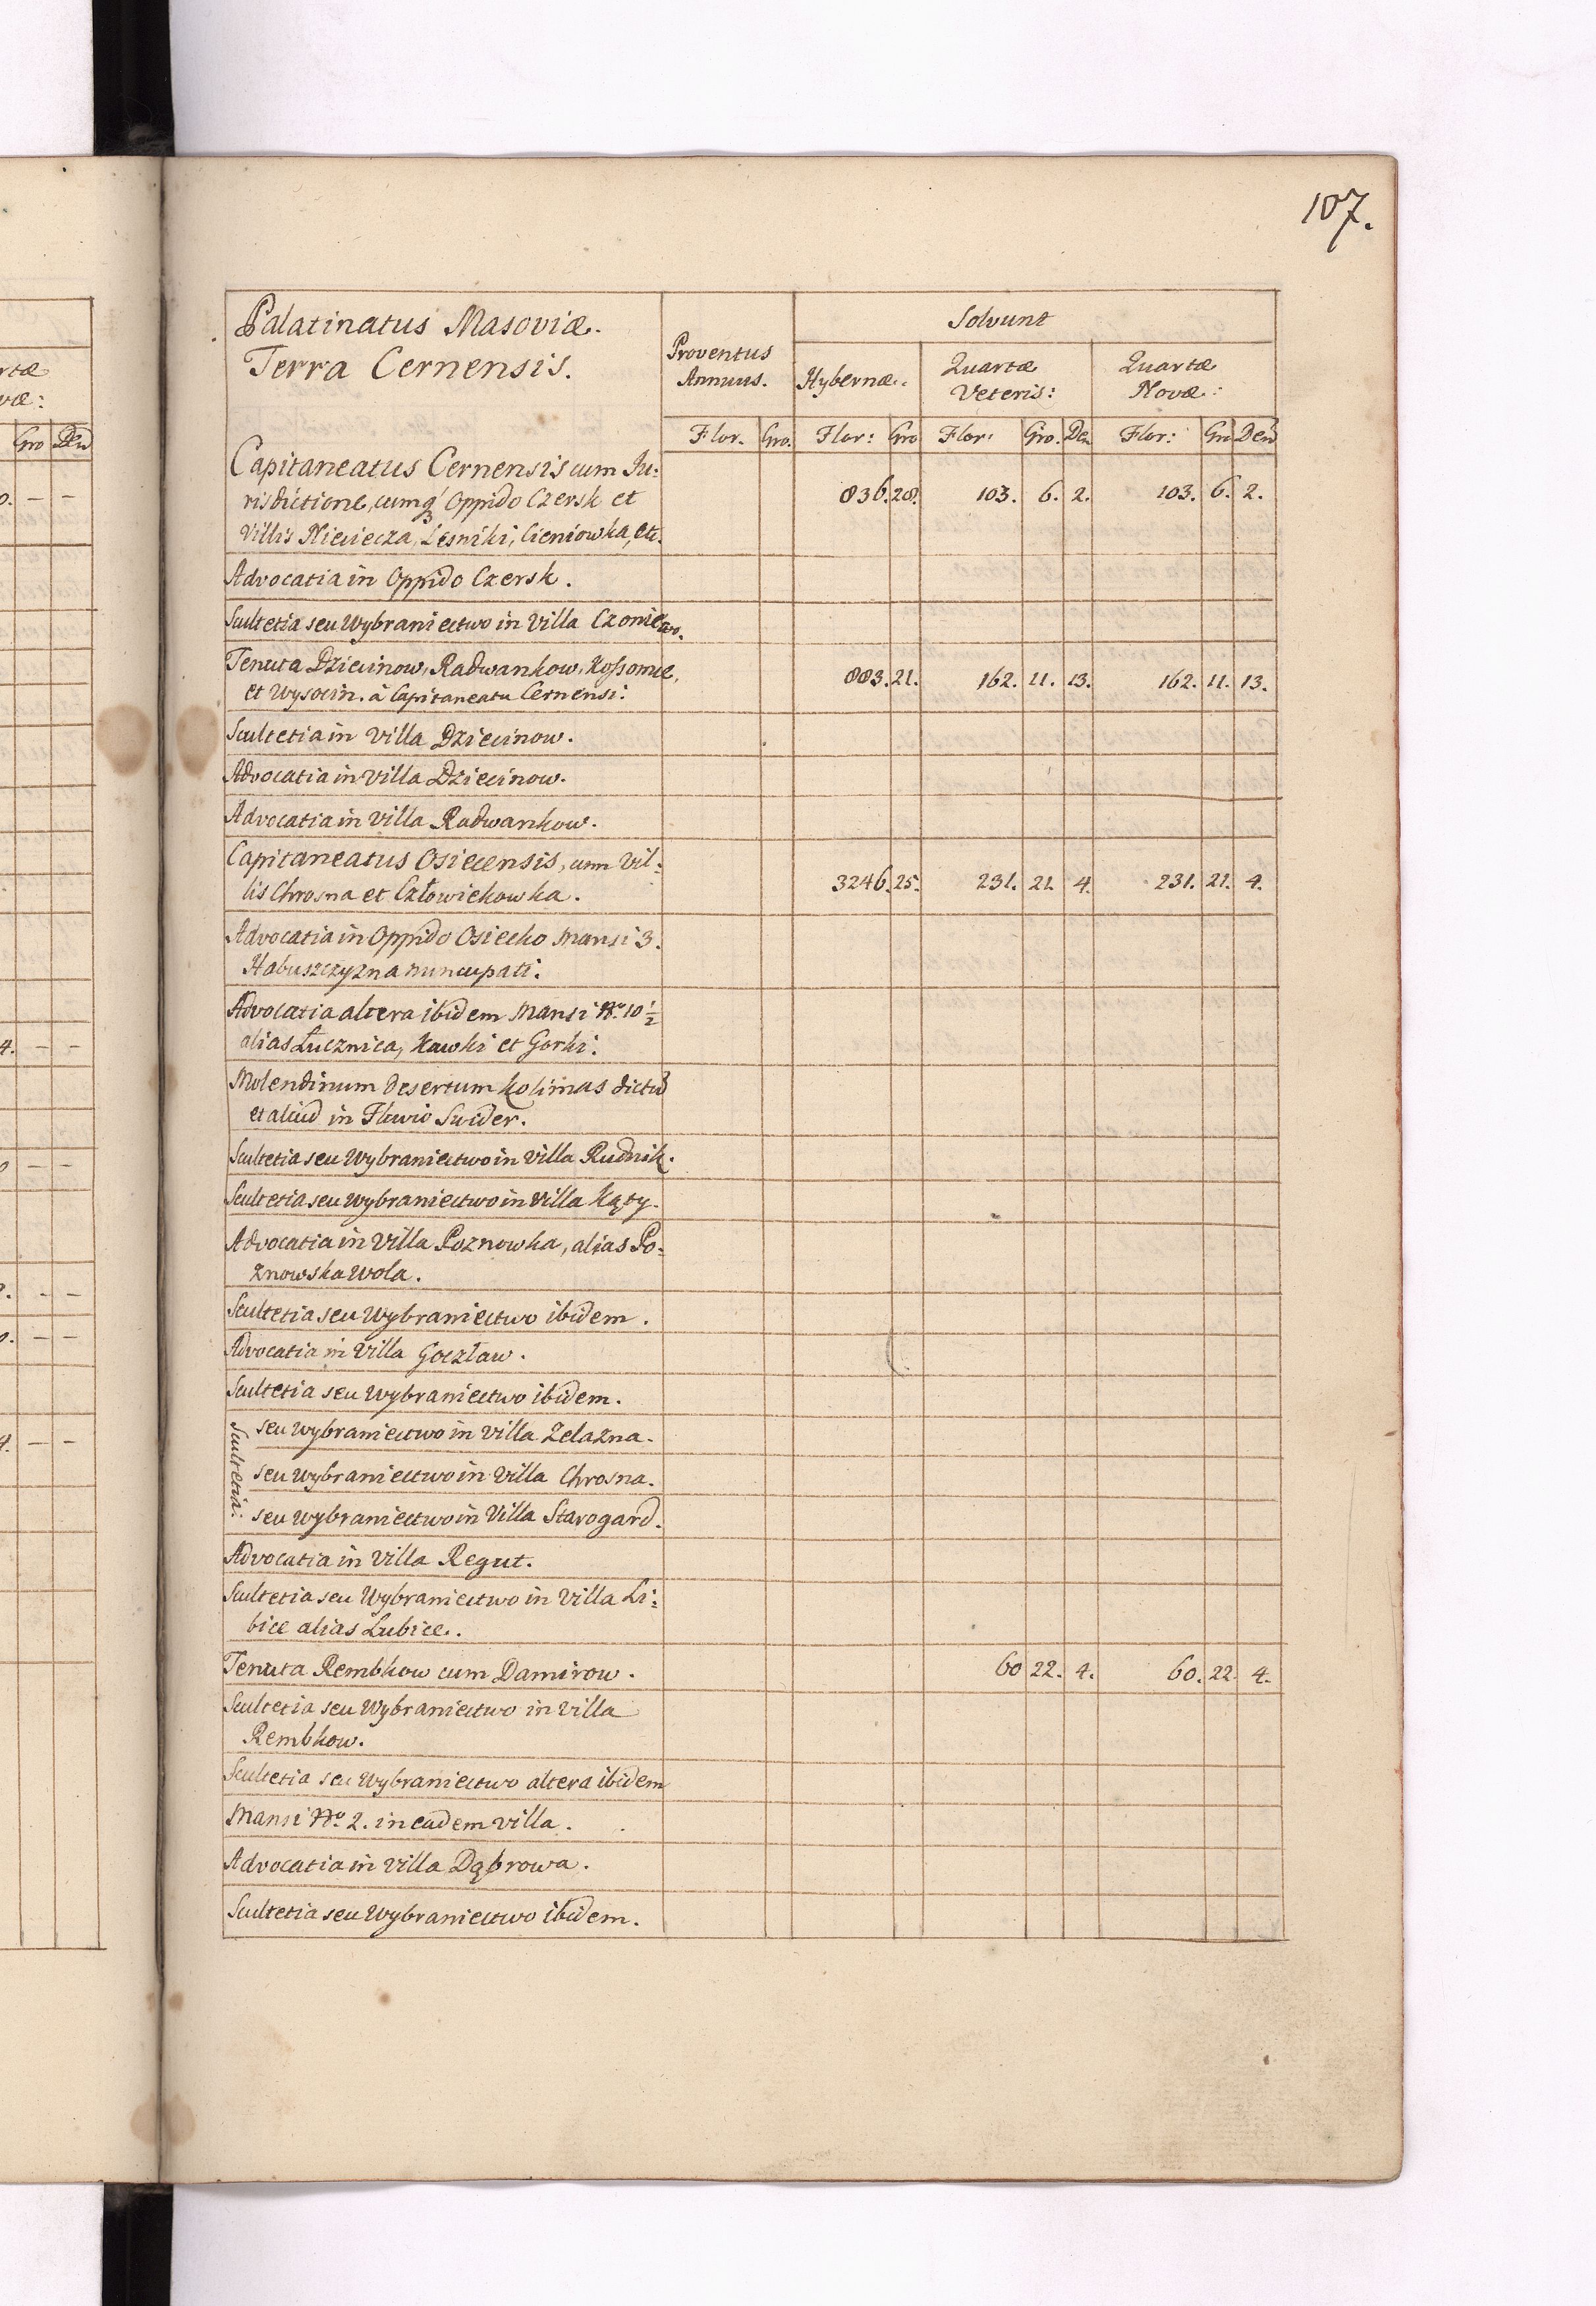 107.
Palatinatus Masoviæ.
Terra Cernensis.
Proventus Annuus.
Solvunt
Hybernæ.
Quartæ Veteris:
Quartæ Novæ:
Flor. Gro. Flor: Gro Flor: Gro. Den Flor: Gro Den
Capitaneatus Cernensis cum Ju:
risdictione, cumq3 Oppido Czersk et 836. 28. 103. 6. 2. 103. 6. 2.
Villis Nieciecza, Lesniki, Cieniowka, etc.
Advocatia in Oppido Czersk.
Scultetia seu Wybraniectwo in Villa
Tenuta Dziecinow, Radwankow, Kossomie, 883. 21. 162. 11. 13. 162. 11. 13.
et Wysocin. à Capitaneatu Cernensi.
Scultetia in Villa Dziecinow.
Advocatia in Villa Dziecinow.
Advocatia in Villa Radwankow.
Capitaneatus Osiecensis, cum Vil:
lis Chrosna et Człowiekowka. 3246. 25. 231. 21. 4. 231. 21. 4.
Advocatia in Oppido Osiecko Mansi 3.
Habuszczyzna nuncupati.
Advocatia altera ibidem Mansi No. 10 1/2
alias Łucznica, Kawki et Gorki.
Molendinum desertum Kolimas dictu
et aliud in Fluvio Swider.
Scultetia seu Wybraniectwo in Villa Rudnik.
Scultetia seu Wybraniectwo in Villa Kąty.
Advocatia in Villa Poznowka, alias Po:
znowska Wola.
Scultetia seu Wybraniectwo ibidem.
Advocatia in Villa Goczław.
Scultetia seu Wybraniectwo ibidem.
Scultetia:
seu Wybraniectwo in Villa Zelazna.
seu Wybraniectwo in Villa Chrosna.
seu Wybraniectwo in Villa Starogard.
Advocatia in Villa Regut.
Scultetia seu Wybraniectwo in Villa Li:
bice alias Lubice.
Tenuta Rembkow cum Damirow. 60 22. 4. 60. 22. 4.
Scultetia seu Wybraniectwo in Villa
Rembkow.
Scultetia seu Wybraniectwo altera ibidem
Mansi No. 2. in eadem Villa.
Advocatia in Villa Dąbrowa.
Scultetia seu Wybraniectwo ibidem.